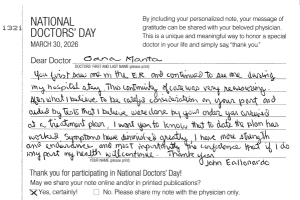 1321
NATIONAL
DOCTORS' DAY
MARCH 30, 2026
By including your personalized note, your message of
gratitude can be shared with your beloved physician.
This is a unique and meaningful way to honor a special
doctor in your life and simply say, "thank you"
Dear Doctor Oana Manta
DOCTORS' FIRST AND LAST NAME (please print)
You first saw me in the E.R. and continued to see me during
my hospital stay. This continuity of care was very reassuring.
After what I believe to be careful consideration on your part and
aided by tests that I believe were done by your order you arrived
at a treatment plan. I want you to know that to date the plan has
worked. Symptoms have diminished greatly. I have more strength
and endurance and most importantly the confidence that if I do
my part my health will continue. Thank you
John
YOUR NAME (please print)
Thank you for participating in National Doctors' Day!
May we share your note online and/or in printed publications?
X Yes, certainly! No. Please share my note with the physician only.